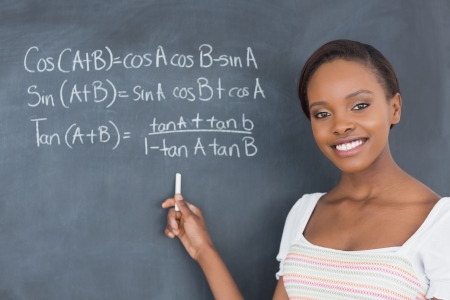 Cos(A+B)=cosA cosB-sinA
Sin(A+B)=sinA cosB+cosA
Tan(A+B)= tanA+tanb
1-tanAtanB